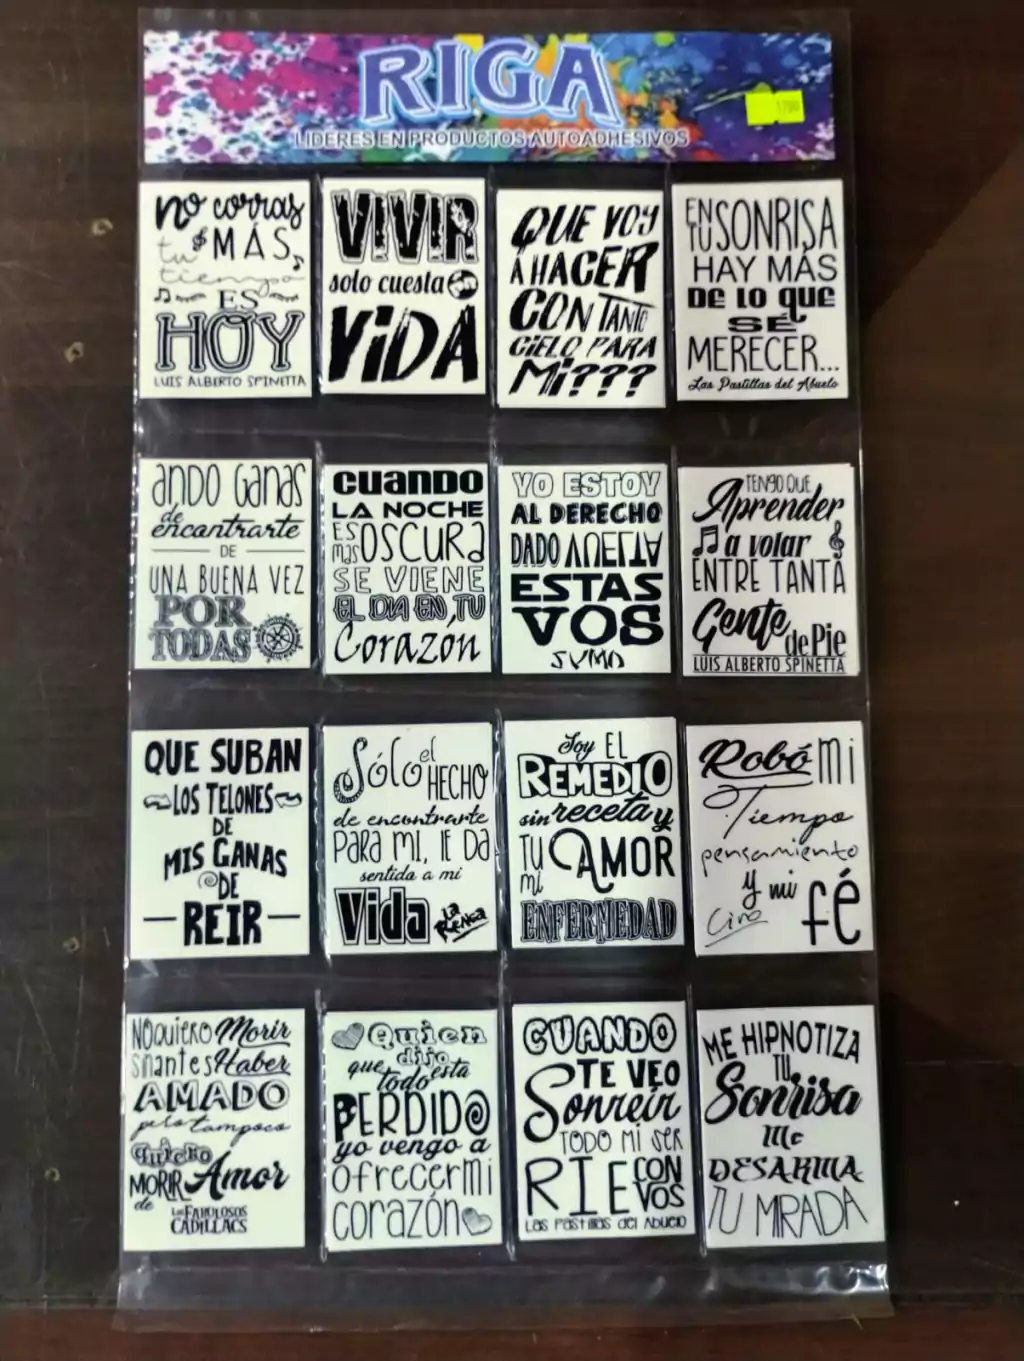 RIGA
LIDERES EN PRODUCTOS AUTOADHESIVOS
1700
no corras
tu MÁS
tiempo
ES
HOY
LUIS ALBERTO SPINETTA
VIVIR
solo cuesta
VIDA
QUE VOY
A HACER
CON TANTO
CIELO PARA
MI???
EN
TU SONRISA
HAY MÁS
DE LO QUE
SÉ
MERECER...
Las Pastillas del Abuelo
ANDO GANAS
de
encontrarte
DE
UNA BUENA VEZ
POR
TODAS
CUANDO
LA NOCHE
ES
mas OSCURA
SE VIENE
EL DIA EN TU
Corazón
YO ESTOY
AL DERECHO
DADO VUELTA
ESTAS
VOS
SUMO
TENGO QUE
Aprender
a volar
ENTRE TANTA
Gente
de Pie
LUIS ALBERTO SPINETTA
QUE SUBAN
LOS TELONES
DE
MIS GANAS
DE
REIR
Sólo el
HECHO
de encontrarte
PARA MI, LE DA
sentida a mi
Vida
LA RENGA
Soy EL
REMEDIO
sin receta y
TU AMOR
mi
ENFERMEDAD
Robó mi
Tiempo
pensamiento
y mi
fé
Ciro
NO QUIERO Morir
sin antes Haber
AMADO
pero tampoco
quiero
MORIR Amor
de
LOS FABULOSOS
CADILLACS
Quien
dijo
que todo esta
PERDIDO
yo vengo a
ofrecer mi
corazón
CUANDO
TE VEO
Sonreir
TODO MI SER
RIE CON
VOS
Las Pastillas del Abuelo
ME HIPNOTIZA
TU
Sonrisa
Me
DESARMA
TU MIRADA